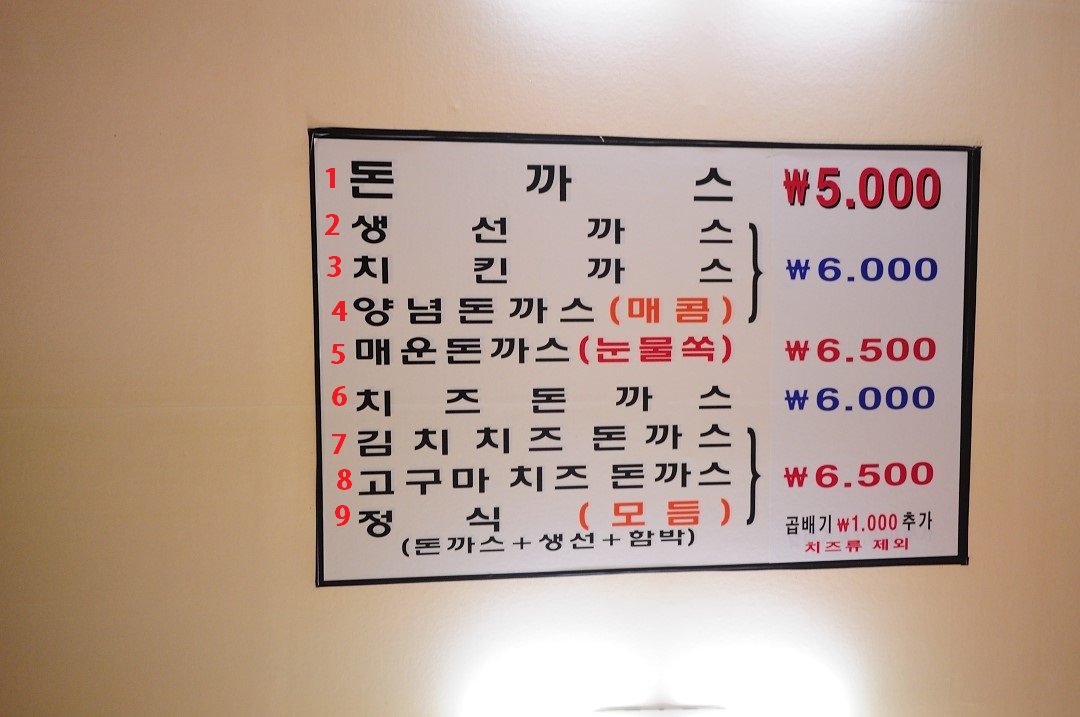 1 돈까스 ₩5.000
2 생선까스
3 치킨까스 ₩6.000
4 양념돈까스 (매콤)
5 매운돈까스 (눈물쏙) ₩6.500
6 치즈돈까스 ₩6.000
7 김치치즈돈까스
8 고구마치즈돈까스 ₩6.500
9 정식 (모듬)
(돈까스+생선+함박)
곱배기 ₩1.000 추가
치즈류 제외